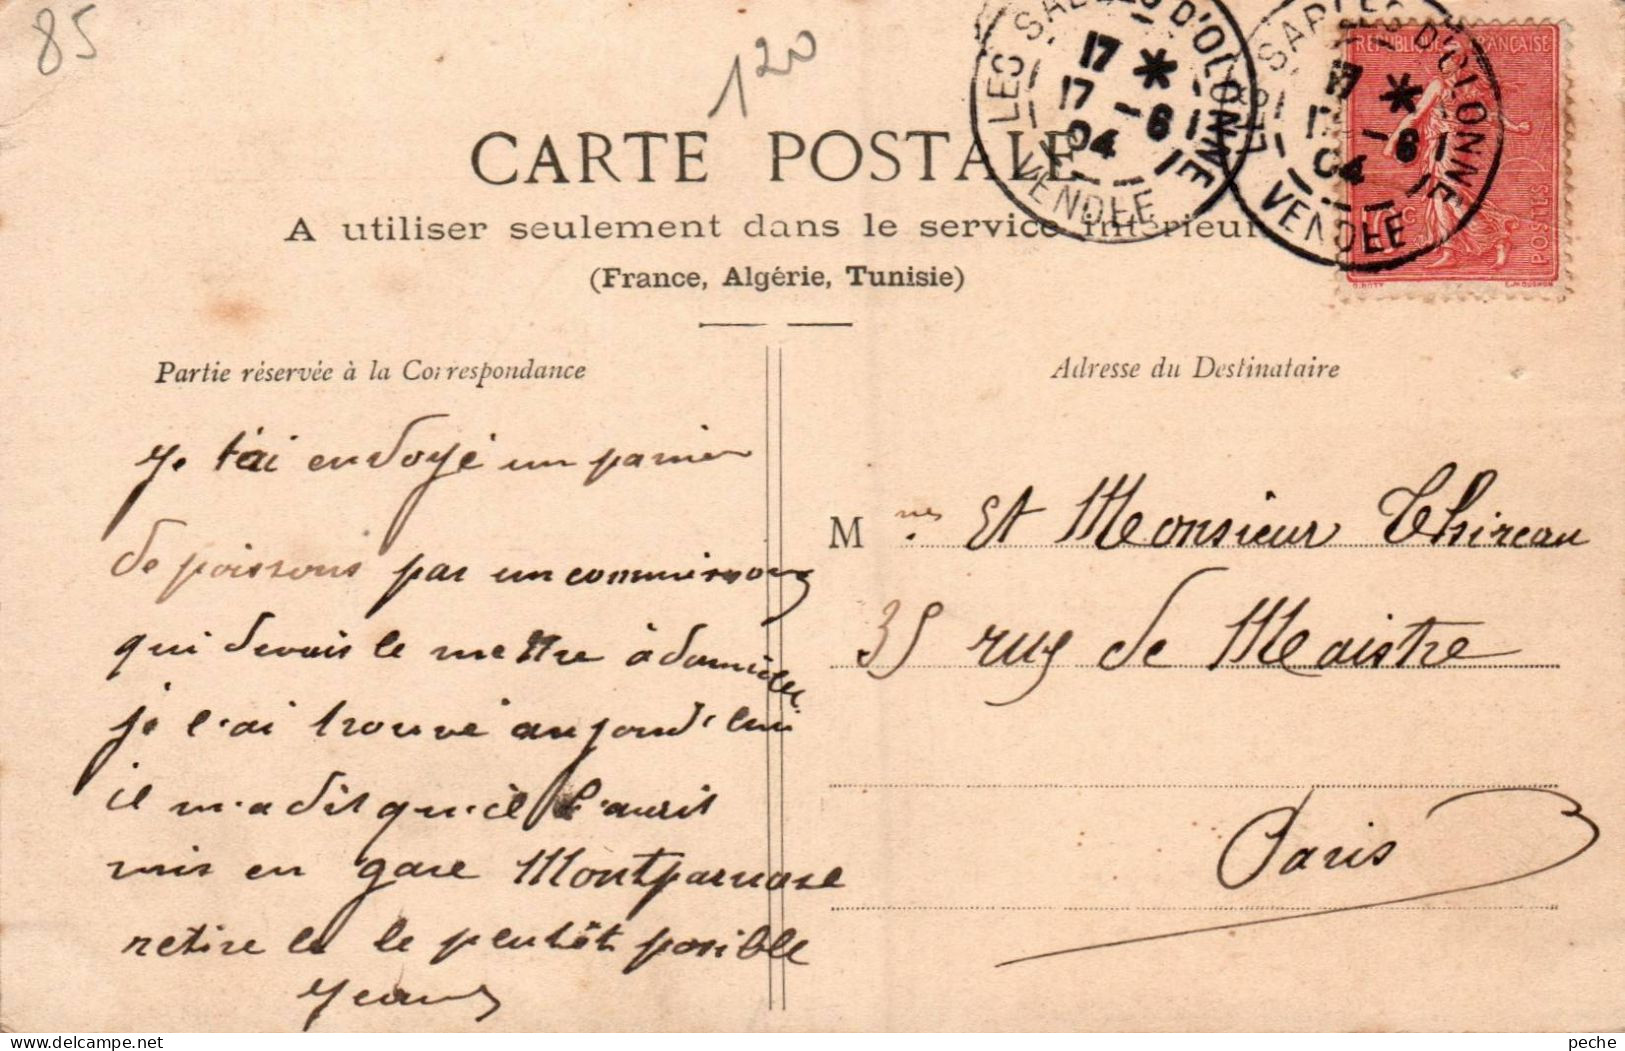 85
120
LES SABLES D'OLONNE
17 *
17 -6
04
VENDÉE
LES SABLES D'OLONNE
17 *
17 -6
04
VENDÉE
RÉPUBLIQUE FRANÇAISE
10 c
POSTES
O. ROTY
E. MOUCHON
CARTE POSTALE
A utiliser seulement dans le service intérieur
(France, Algérie, Tunisie)
Partie réservée à la Correspondance
Je t'ai envoyé un panier
de poissons par un commissong
qui devais le mettre à domicile
je l'ai trouvé aujourd'hui
il m'a dit qu'il l'aurit
mis en gare Montparnase
retire le le plutôt posible
Jean
Adresse du Destinataire
M mes et Monsieur Thireau
35 rue de Maistre
Paris
peche